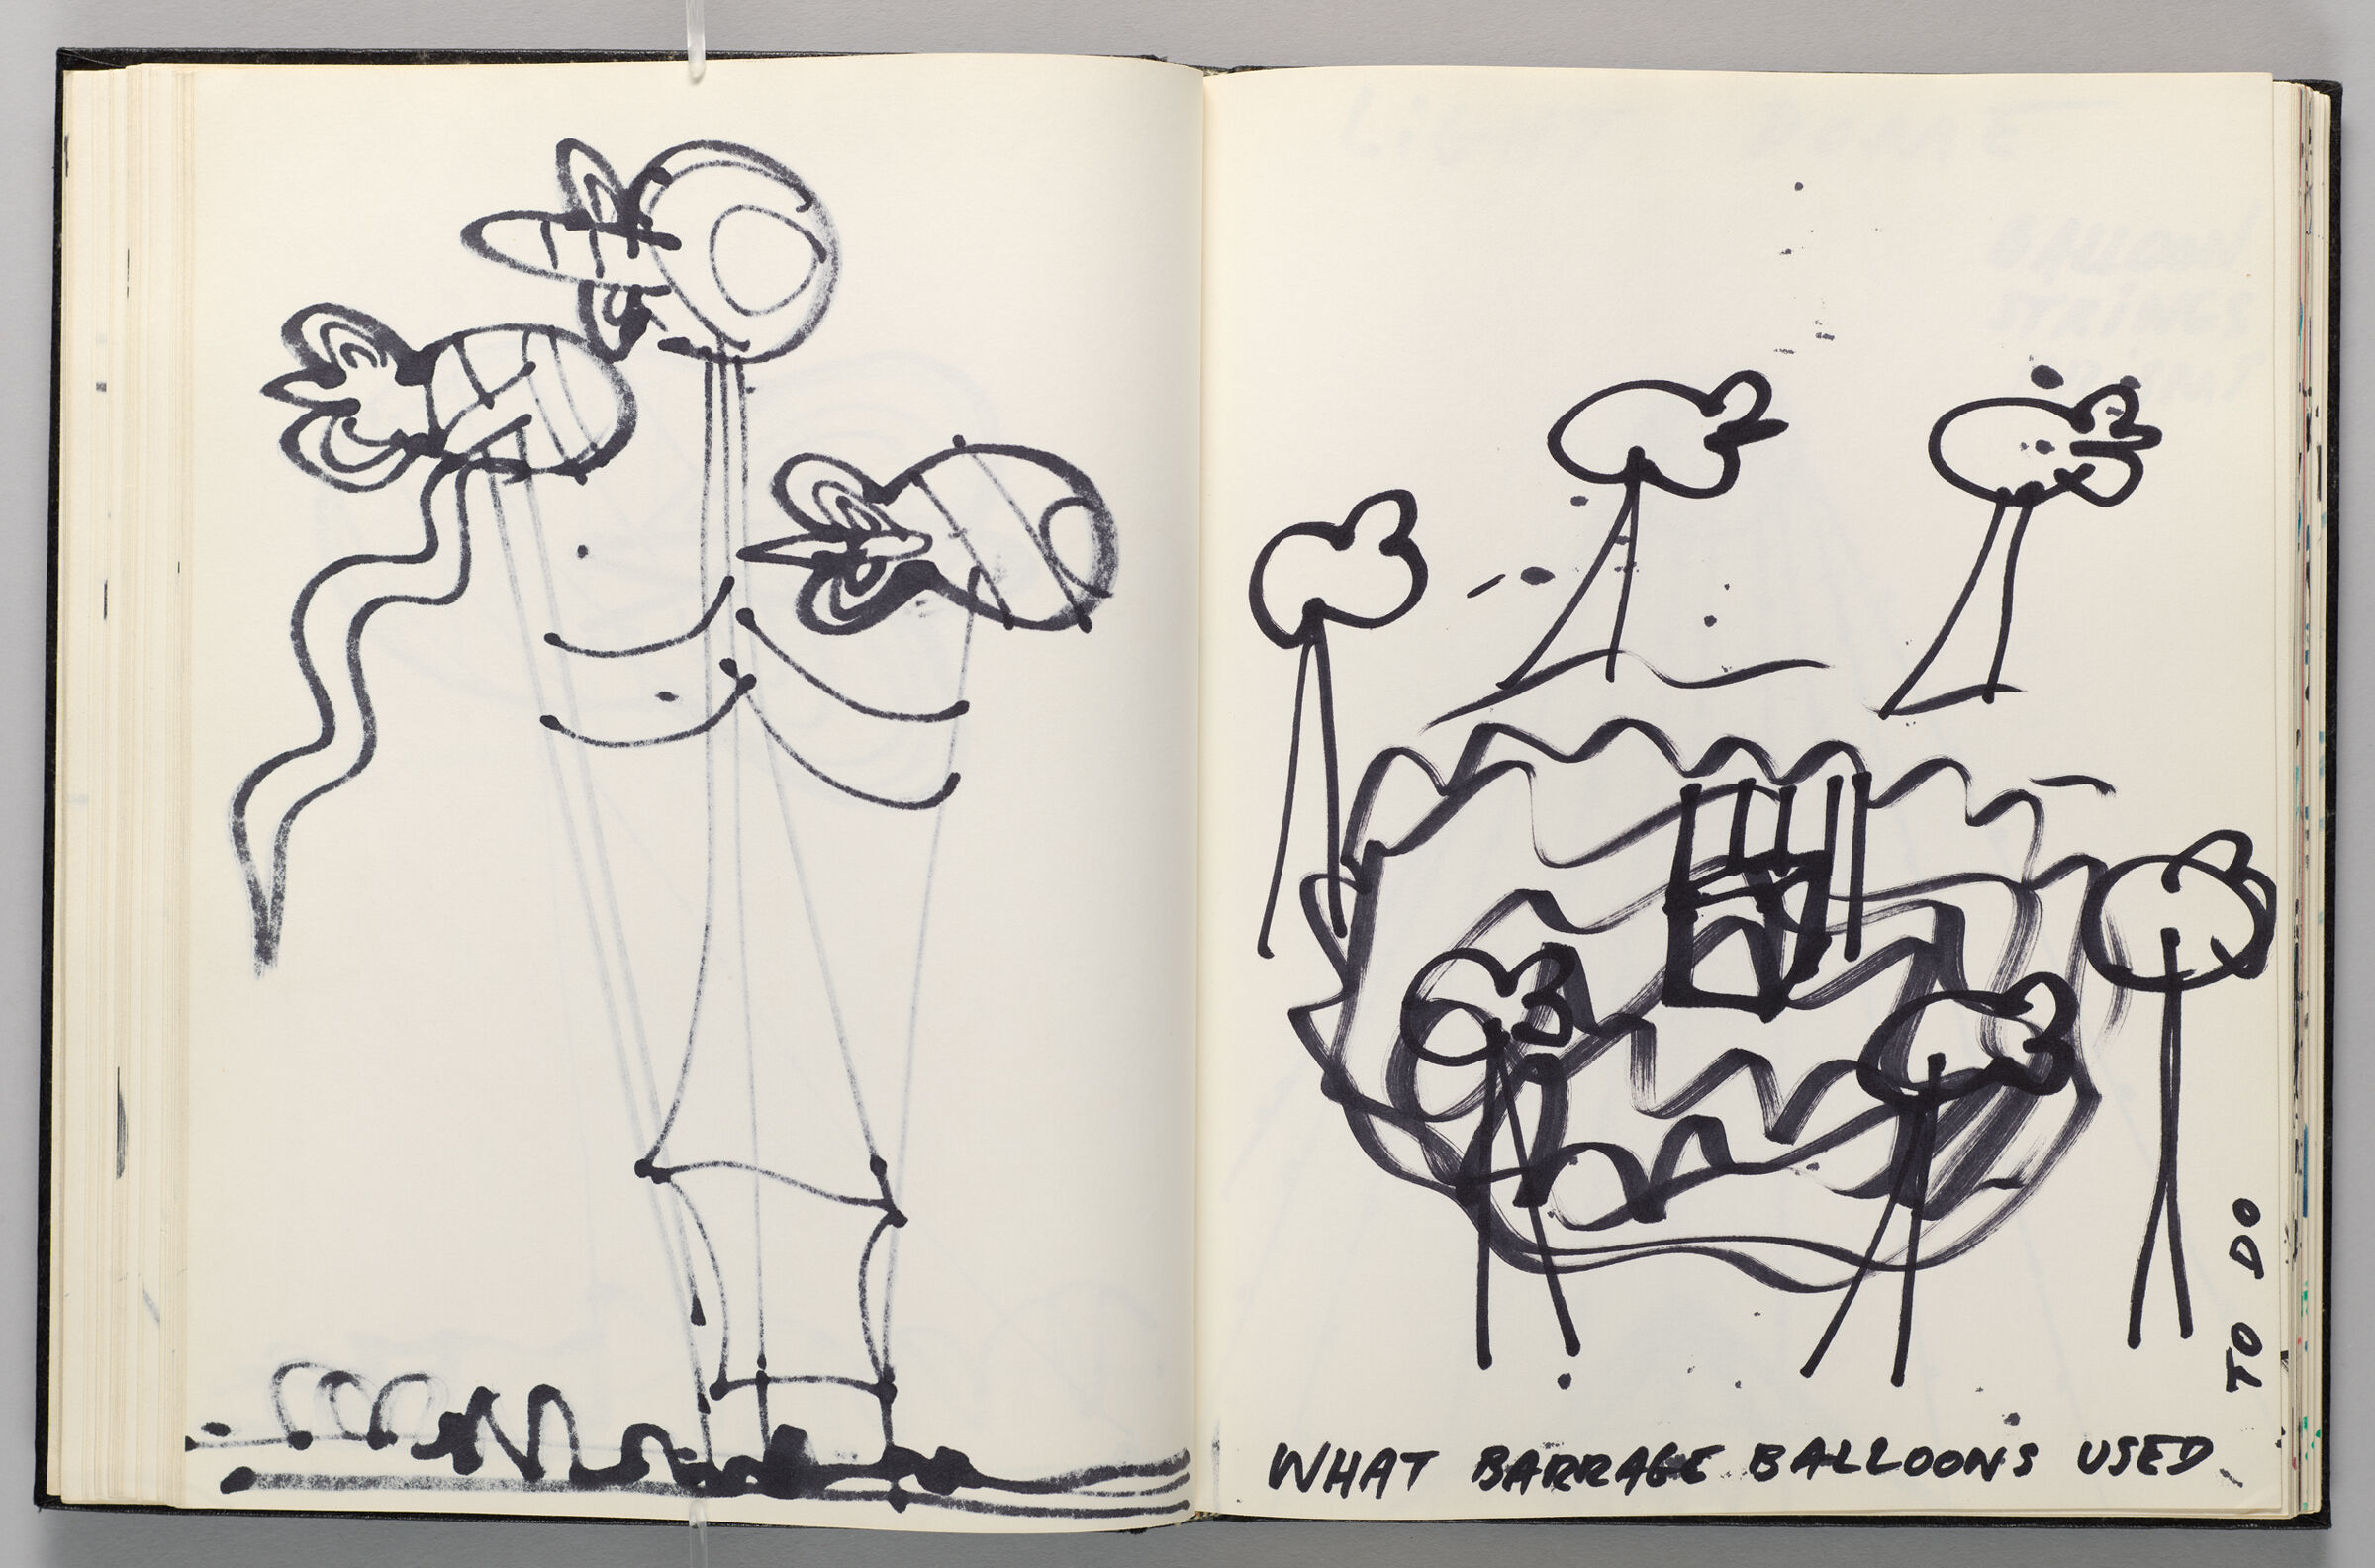 WHAT BARRAGE BALLOONS USED
TO DO